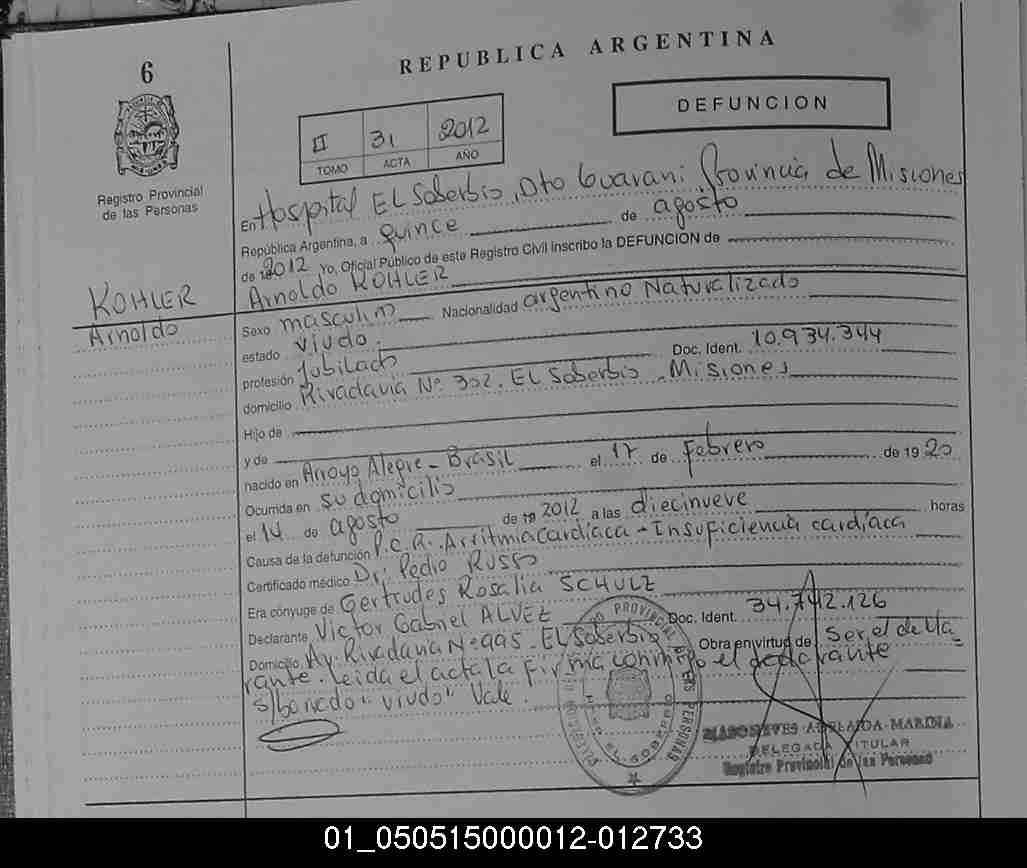 6
REPUBLICA ARGENTINA
DEFUNCION
II 31 2012
TOMO ACTA AÑO
Registro Provincial
de las Personas
En Hospital EL Soberbio, Dto Guarani Provincia de Misiones
República Argentina, a quince de agosto
de 2012 Yo, Oficial Público de este Registro Civil inscribo la DEFUNCION de
Arnoldo KOHLER
KOHLER
Arnoldo
Sexo masculino Nacionalidad argentino Naturalizado
estado viudo.
profesión Jubilado Doc. Ident. 10.934.344
domicilio Rivadavia Nº 302. EL Soberbio - Misiones
Hijo de
y de
nacido en Arroyo Alegre - Brasil el 17 de Febrero de 1920
Ocurrida en su domicilio
el 14 de agosto de 2012 a las diecinueve horas
Causa de la defunción P.C.R. Arritmia cardíaca - Insuficiencia cardíaca
Certificado médico Dr. Pedro Russo
Era cónyuge de Gertrudes Rosalia SCHULZ
Declarante Victor Gabriel ALVEZ Doc. Ident. 34.742.126
Domicilio Av. Rivadavia Nº 995 - EL Soberbio Obra en virtud de Ser el decla
rante. Leida el acta la firma conmigo el declarante
s/borrado "viudo" Vale.
ADELAIDA MARINA
DELEGADA TITULAR
Registro Provincial de las Personas
01_050515000012-012733